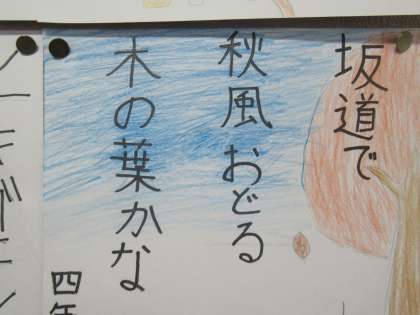 坂道で
秋風おどる
木の葉かな
四年